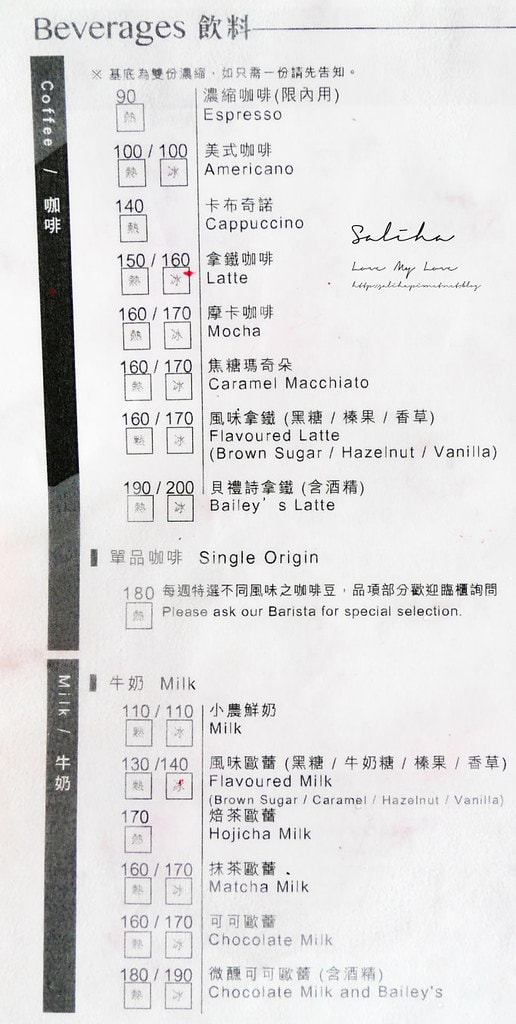 Beverages 飲料
Coffee / 咖啡
※ 基底為雙份濃縮，如只需一份請先告知。
90 濃縮咖啡(限內用)
熱 Espresso
100 / 100 美式咖啡
熱 冰 Americano
140 卡布奇諾
熱 Cappuccino
150 / 160 拿鐵咖啡
熱 冰 Latte
160 / 170 摩卡咖啡
熱 冰 Mocha
160 / 170 焦糖瑪奇朵
熱 冰 Caramel Macchiato
160 / 170 風味拿鐵 (黑糖 / 榛果 / 香草)
熱 冰 Flavoured Latte
(Brown Sugar / Hazelnut / Vanilla)
190 / 200 貝禮詩拿鐵 (含酒精)
熱 冰 Bailey's Latte
單品咖啡 Single Origin
180 每週特選不同風味之咖啡豆，品項部分歡迎臨櫃詢問
熱 Please ask our Barista for special selection.
Milk / 牛奶
牛奶 Milk
110 / 110 小農鮮奶
熱 冰 Milk
130 /140 風味歐蕾 (黑糖 / 牛奶糖 / 榛果 / 香草)
熱 冰 Flavoured Milk
(Brown Sugar / Caramel / Hazelnut / Vanilla)
170 焙茶歐蕾
熱 Hojicha Milk
160 / 170 抹茶歐蕾
熱 冰 Matcha Milk
160 / 170 可可歐蕾
熱 冰 Chocolate Milk
180 / 190 微醺可可歐蕾 (含酒精)
熱 冰 Chocolate Milk and Bailey's
Saliha
Love My Love